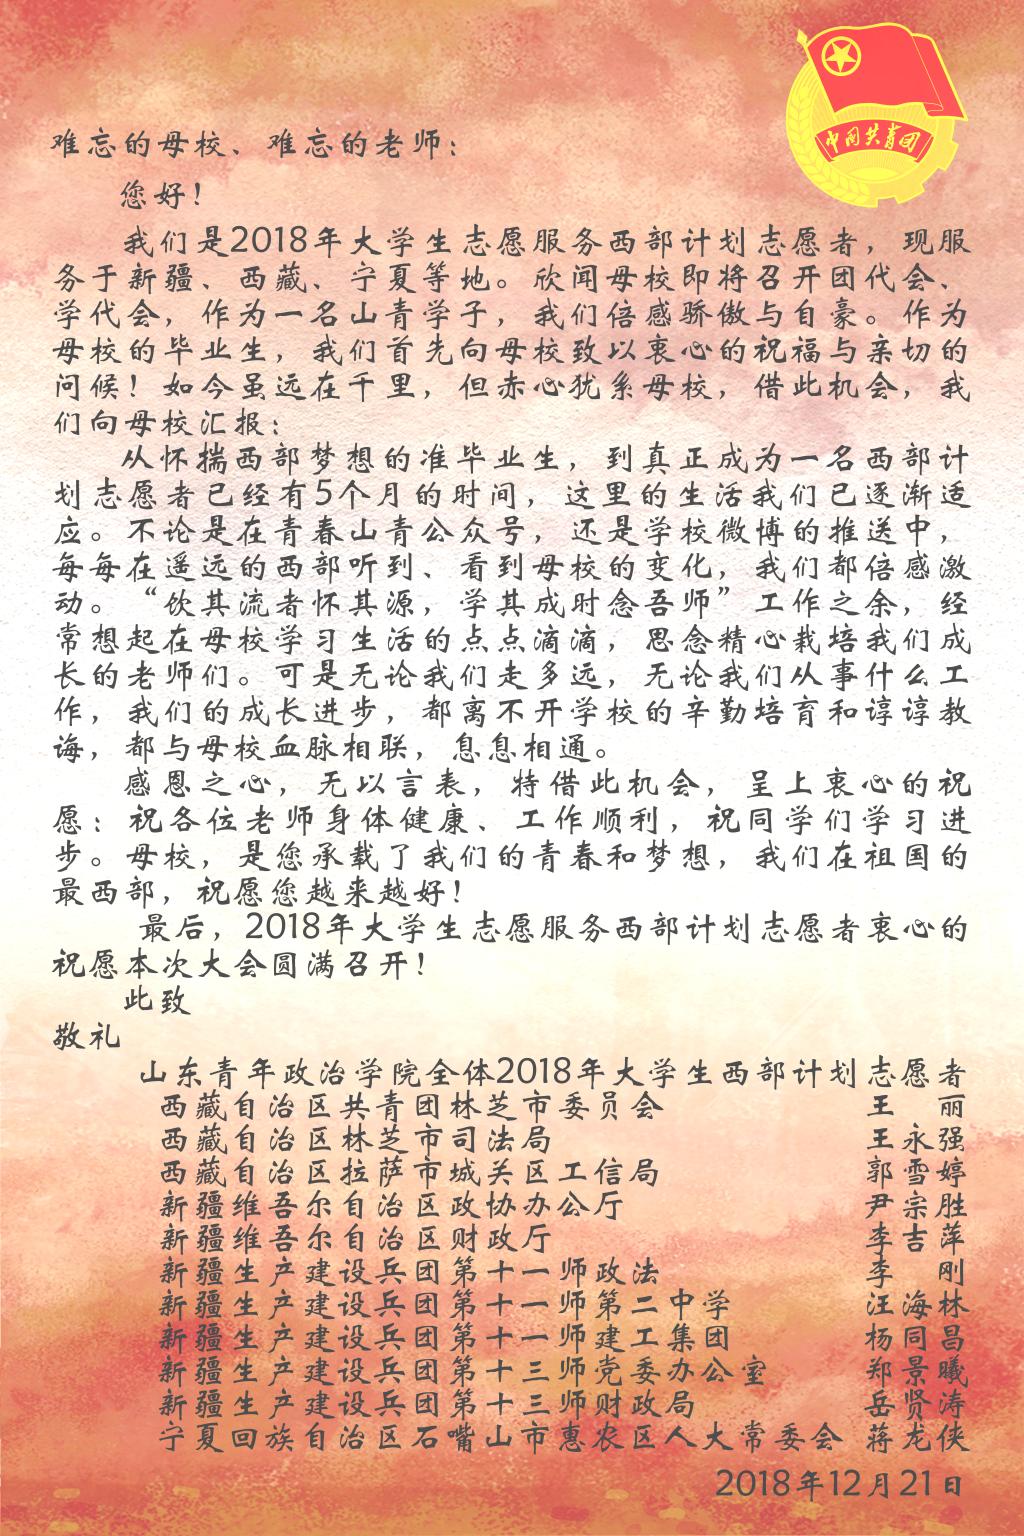 中国共青团
难忘的母校、难忘的老师：
您好！
我们是2018年大学生志愿服务西部计划志愿者，现服
务于新疆、西藏、宁夏等地。欣闻母校即将召开团代会、
学代会，作为一名山青学子，我们倍感骄傲与自豪。作为
母校的毕业生，我们首先向母校致以衷心的祝福与亲切的
问候！如今虽远在千里，但赤心犹系母校，借此机会，我
们向母校汇报：
从怀揣西部梦想的准毕业生，到真正成为一名西部计
划志愿者已经有5个月的时间，这里的生活我们已逐渐适
应。不论是在青春山青公众号，还是学校微博的推送中，
每每在遥远的西部听到、看到母校的变化，我们都倍感激
动。“饮其流者怀其源，学其成时念吾师”工作之余，经
常想起在母校学习生活的点点滴滴，思念精心栽培我们成
长的老师们。可是无论我们走多远，无论我们从事什么工
作，我们的成长进步，都离不开学校的辛勤培育和谆谆教
诲，都与母校血脉相联，息息相通。
感恩之心，无以言表，特借此机会，呈上衷心的祝
愿：祝各位老师身体健康、工作顺利，祝同学们学习进
步。母校，是您承载了我们的青春和梦想，我们在祖国的
最西部，祝愿您越来越好！
最后，2018年大学生志愿服务西部计划志愿者衷心的
祝愿本次大会圆满召开！
此致
敬礼
山东青年政治学院全体2018年大学生西部计划志愿者
西藏自治区共青团林芝市委员会 王 丽
西藏自治区林芝市司法局 王永强
西藏自治区拉萨市城关区工信局 郭雪婷
新疆维吾尔自治区政协办公厅 尹宗胜
新疆维吾尔自治区财政厅 李吉萍
新疆生产建设兵团第十一师政法 李 刚
新疆生产建设兵团第十一师第二中学 汪海林
新疆生产建设兵团第十一师建工集团 杨同昌
新疆生产建设兵团第十三师党委办公室 郑景曦
新疆生产建设兵团第十三师财政局 岳贤涛
宁夏回族自治区石嘴山市惠农区人大常委会 蒋龙侠
2018年12月21日